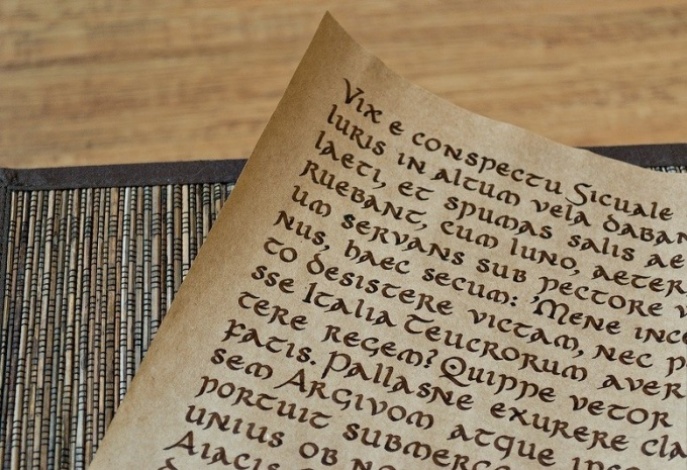 Vix e conspectu Sicuale
luris in altum vela daban
laeti, et spumas salis ae
ruebant, cum luno, aeter
um servans sub pectore v
nus, haec secum: 'Mene inc
to desistere victam, nec p
sse Italia Teucrorum aver
tere regem? Quippe vetor
fatis. Pallasne exurere cla
sem Argivom atque in
portuit submerge
unius ob no
Aiacis